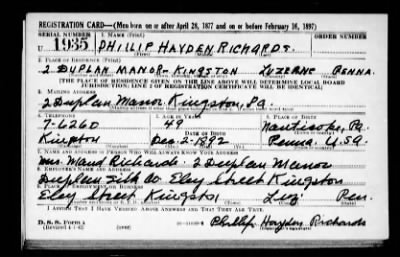 REGISTRATION CARD—(Men born on or after April 28, 1877 and on or before February 16, 1897)
SERIAL NUMBER 1. NAME (Print) ORDER NUMBER
U 1935 PHILLIP HAYDEN RICHARDS.
2. PLACE OF RESIDENCE (Print)
2 DUPLAN MANOR - KINGSTON LUZERNE PENNA.
[THE PLACE OF RESIDENCE GIVEN ON THE LINE ABOVE WILL DETERMINE LOCAL BOARD
JURISDICTION; LINE 2 OF REGISTRATION CERTIFICATE WILL BE IDENTICAL]
3. MAILING ADDRESS
2 Duplan Manor Kingston, Pa.
4. TELEPHONE 5. AGE IN YEARS 6. PLACE OF BIRTH
7-6260 49 Nanticoke, Pa.
DATE OF BIRTH
Kingston Dec. 2 - 1892 Penna. U.S.A.
7. NAME AND ADDRESS OF PERSON WHO WILL ALWAYS KNOW YOUR ADDRESS
Mrs. Maud Richards. 2 Duplan Manor
8. EMPLOYER'S NAME AND ADDRESS
Duplan Silk Co. Eley Street Kingston
9. PLACE OF EMPLOYMENT OR BUSINESS
Eley Street Kingston Luz Pen.
I AFFIRM THAT I HAVE VERIFIED ABOVE ANSWERS AND THAT THEY ARE TRUE.
D. S. S. Form 1
(Revised 4-1-42)
Phillip Hayden Richards